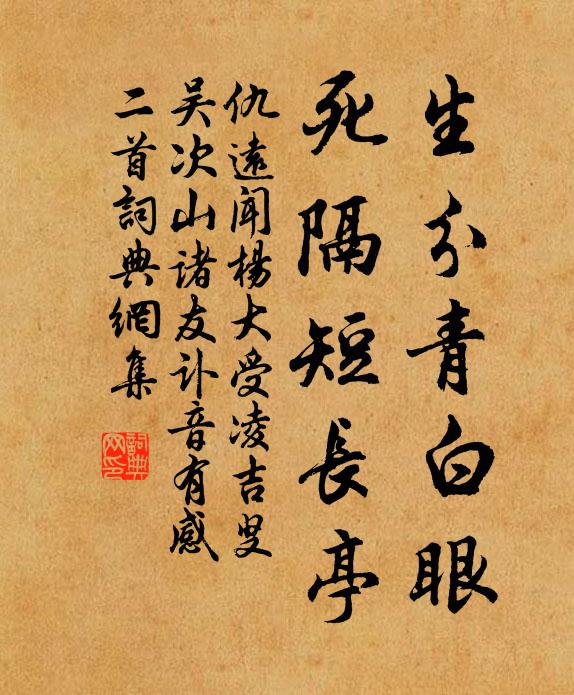 生分青白眼
死隔短長亭
仇遠聞楊大受凌吉叟
吴次山諸友訃音有感
二首詞典網集
詞典
网印